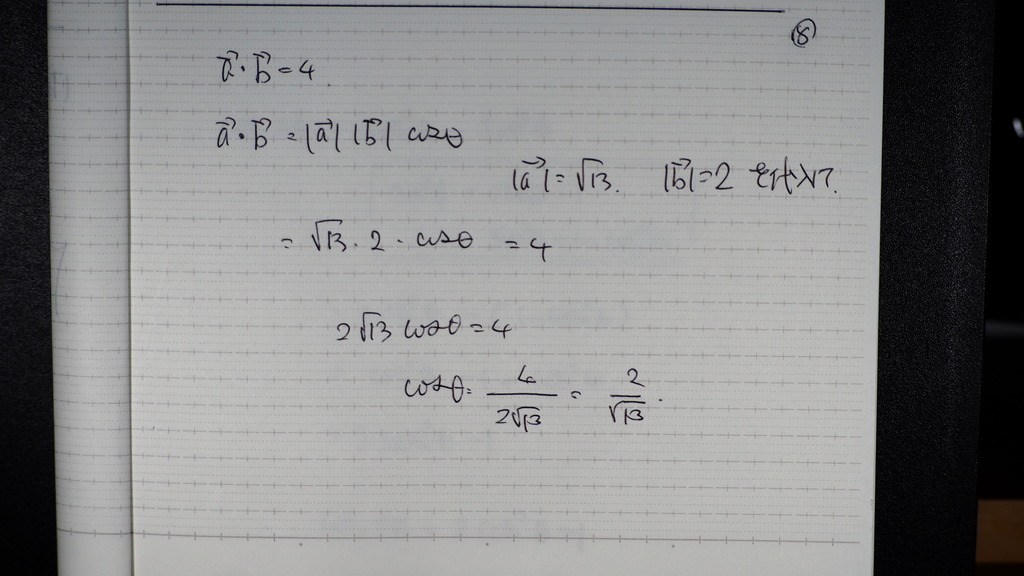 ⑧
$\vec{a} \cdot \vec{b} = 4$
$\vec{a} \cdot \vec{b} = |\vec{a}| |\vec{b}| \cos\theta$
$|\vec{a}| = \sqrt{13}.$ $|\vec{b}| = 2$ を代入して.
$= \sqrt{13} \cdot 2 \cdot \cos\theta = 4$
$2\sqrt{13} \cos\theta = 4$
$\cos\theta = \frac{4}{2\sqrt{13}} = \frac{2}{\sqrt{13}}.$